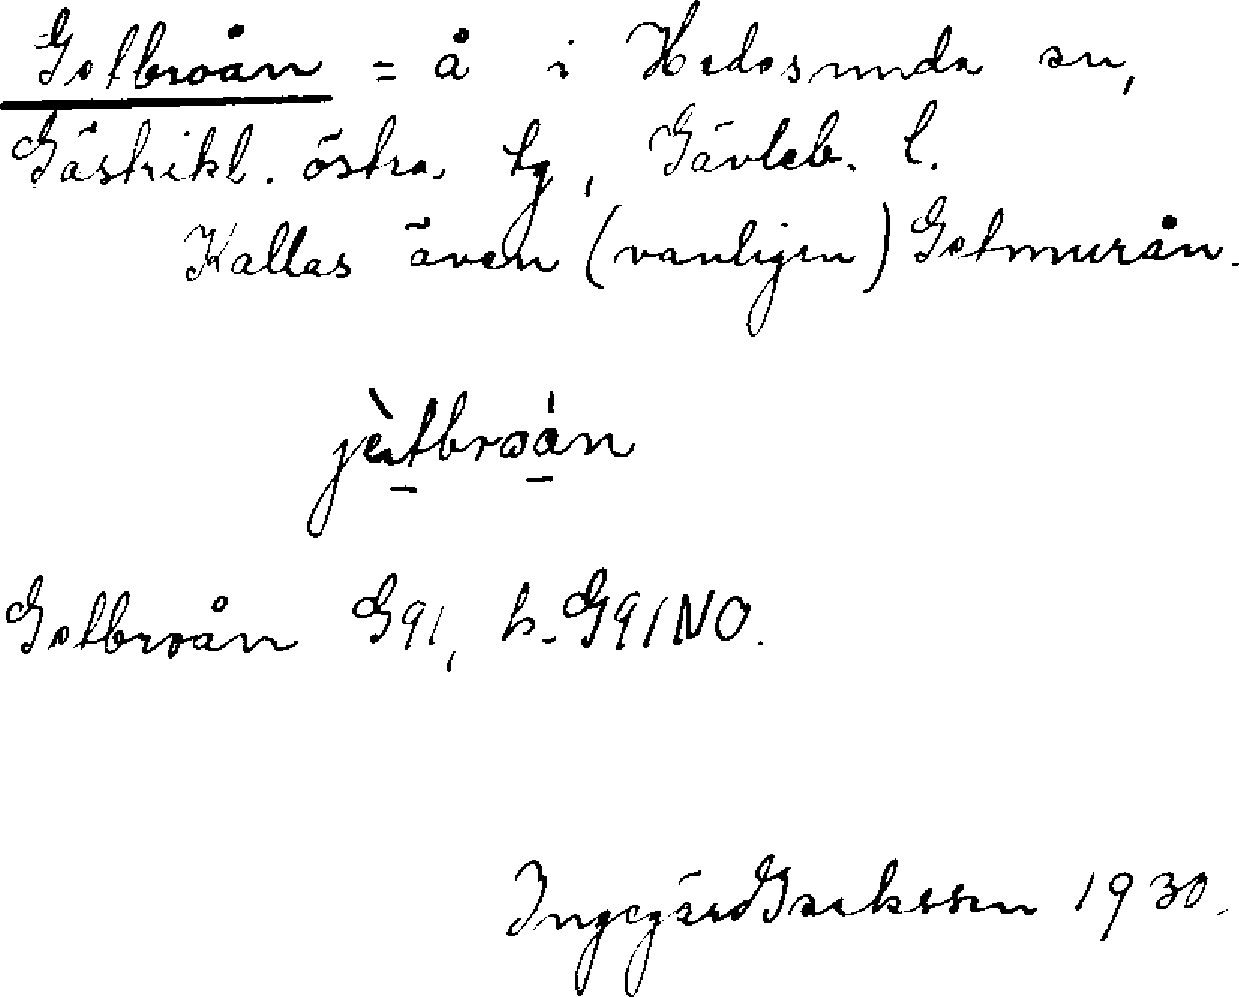 Getbroån = å i Hedesunda sn,
Gästrikl. östra tg, Gävleb. l.
Kallas även (vanligen) Getmurån.
jètbroán
Getbroån G91, h. G91NO.
Ingegärd Isaksson 1930.